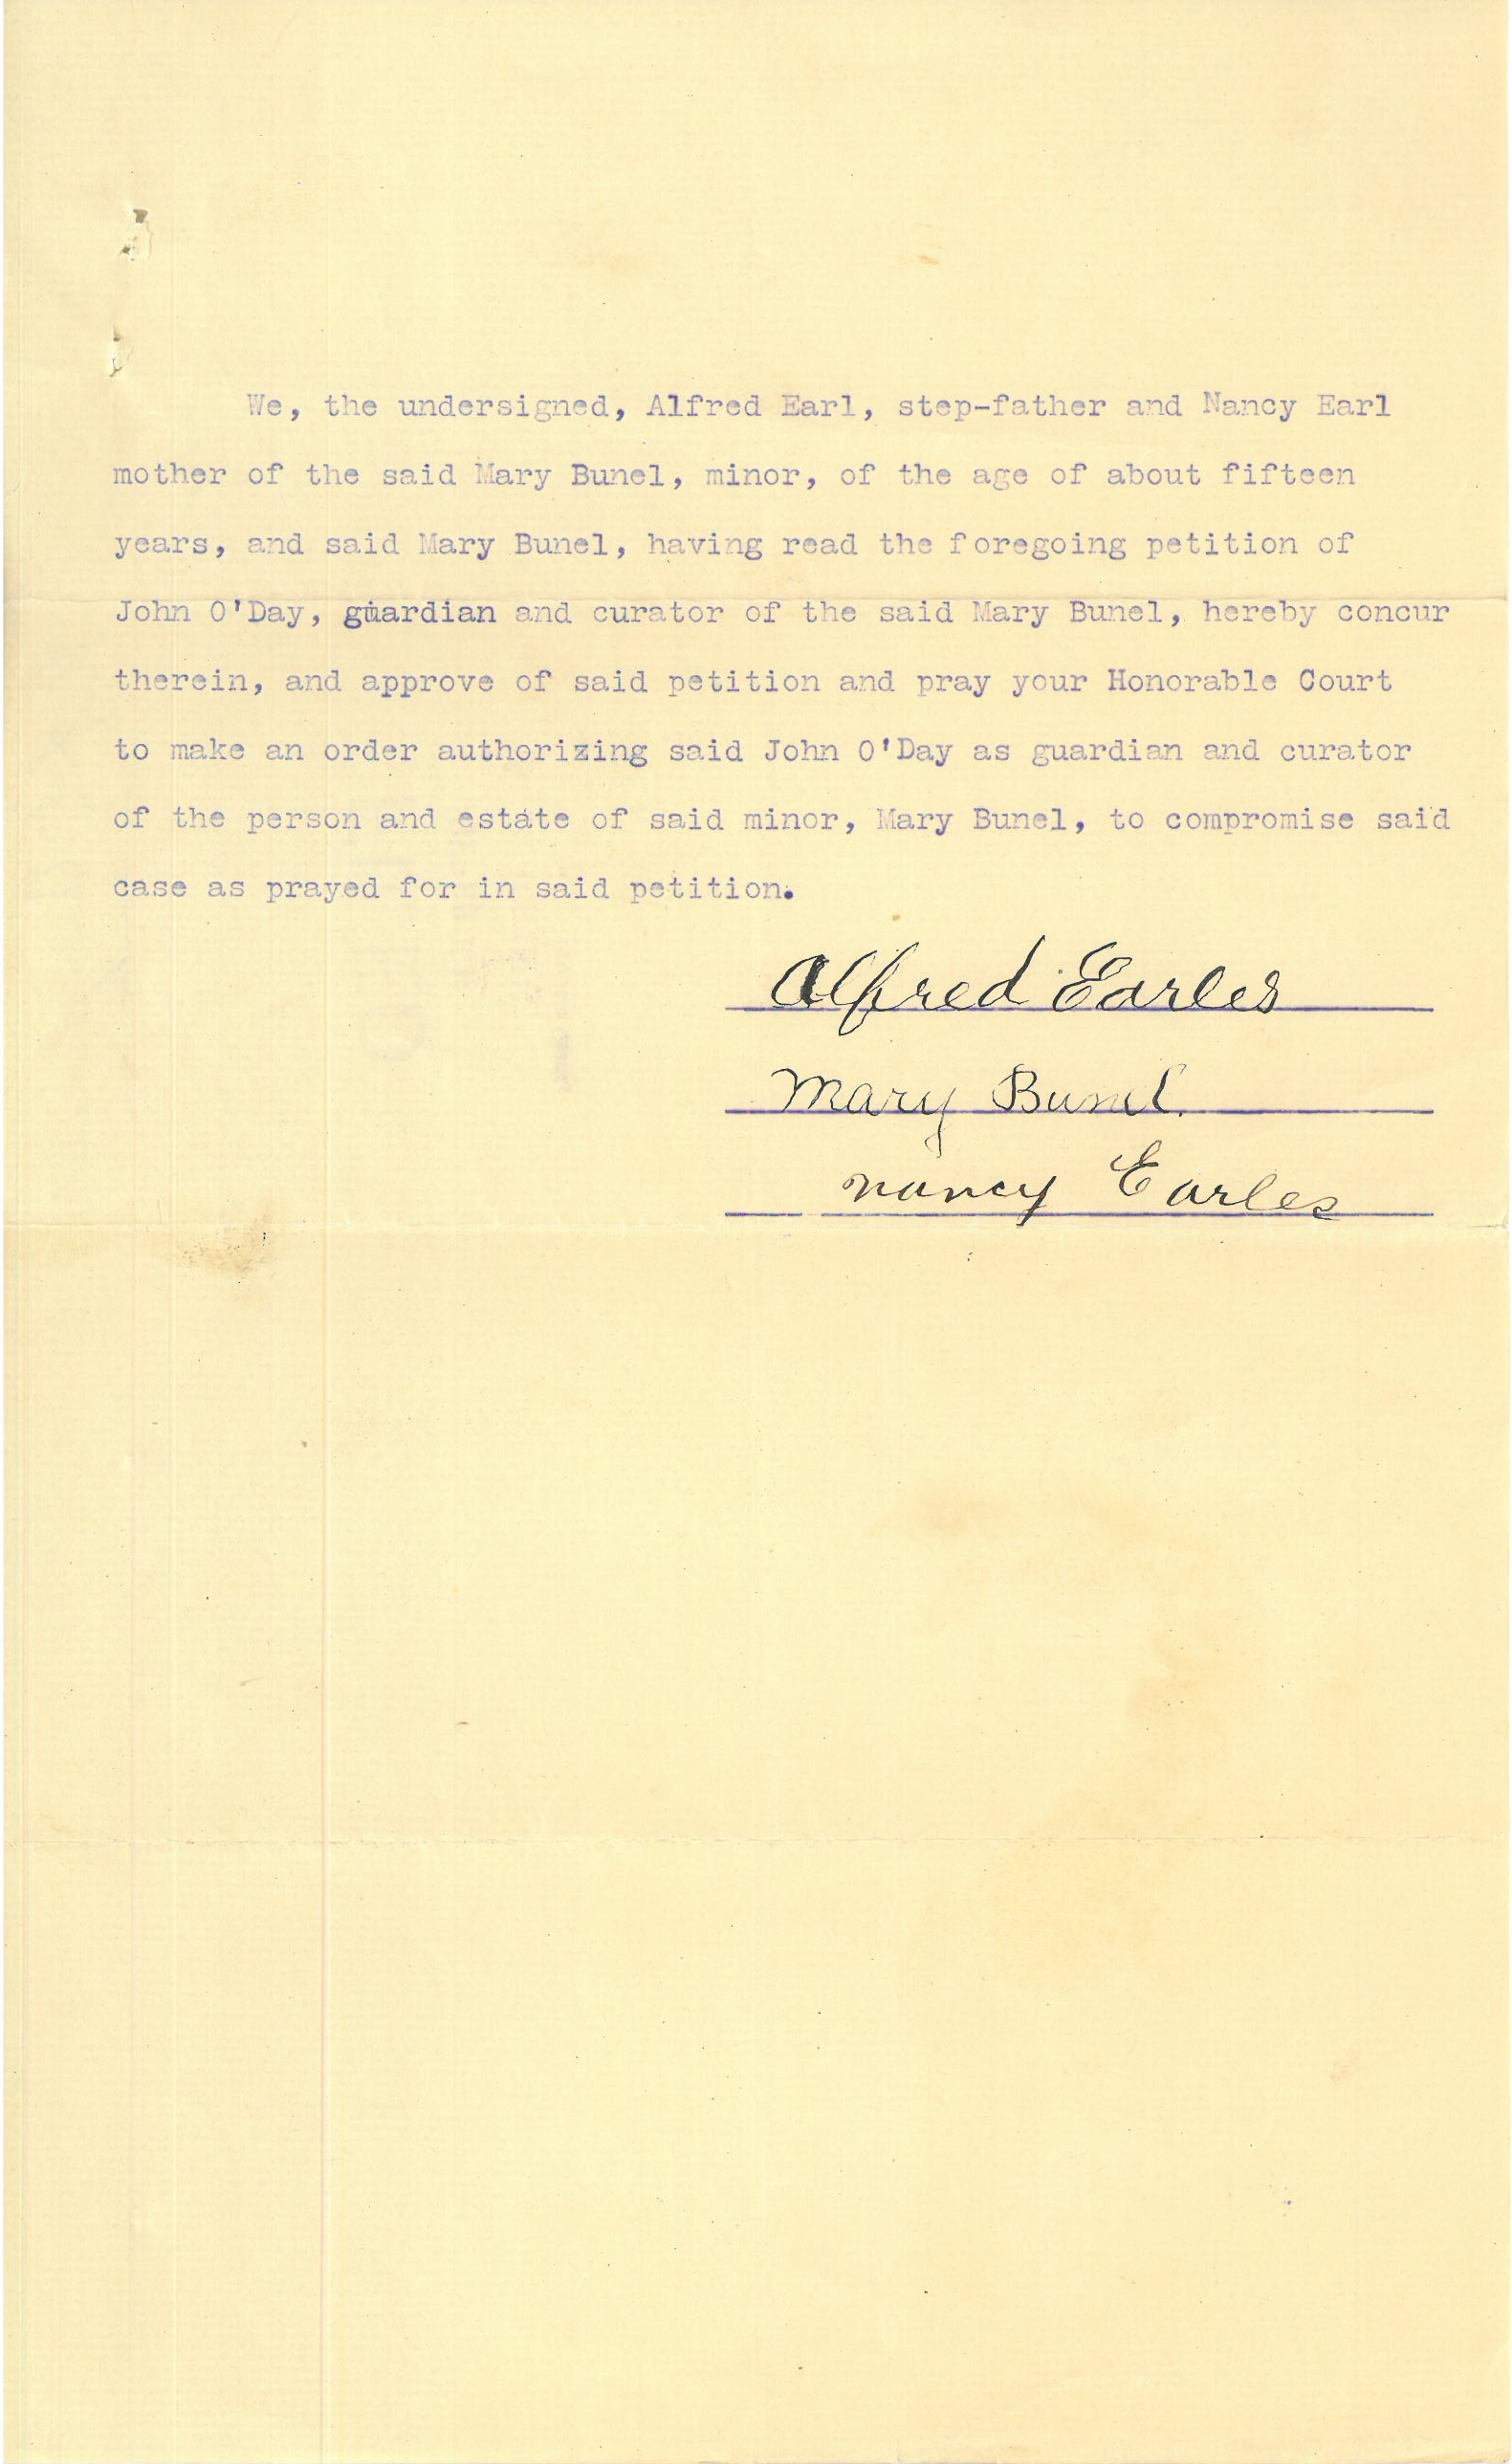 We, the undersigned, Alfred Earl, step-father and Nancy Earl
mother of the said Mary Bunel, minor, of the age of about fifteen
years, and said Mary Bunel, having read the foregoing petition of
John O'Day, guardian and curator of the said Mary Bunel, hereby concur
therein, and approve of said petition and pray your Honorable Court
to make an order authorizing said John O'Day as guardian and curator
of the person and estate of said minor, Mary Bunel, to compromise said
case as prayed for in said petition.
Alfred Earles
Mary Bunel.
nancy Earles